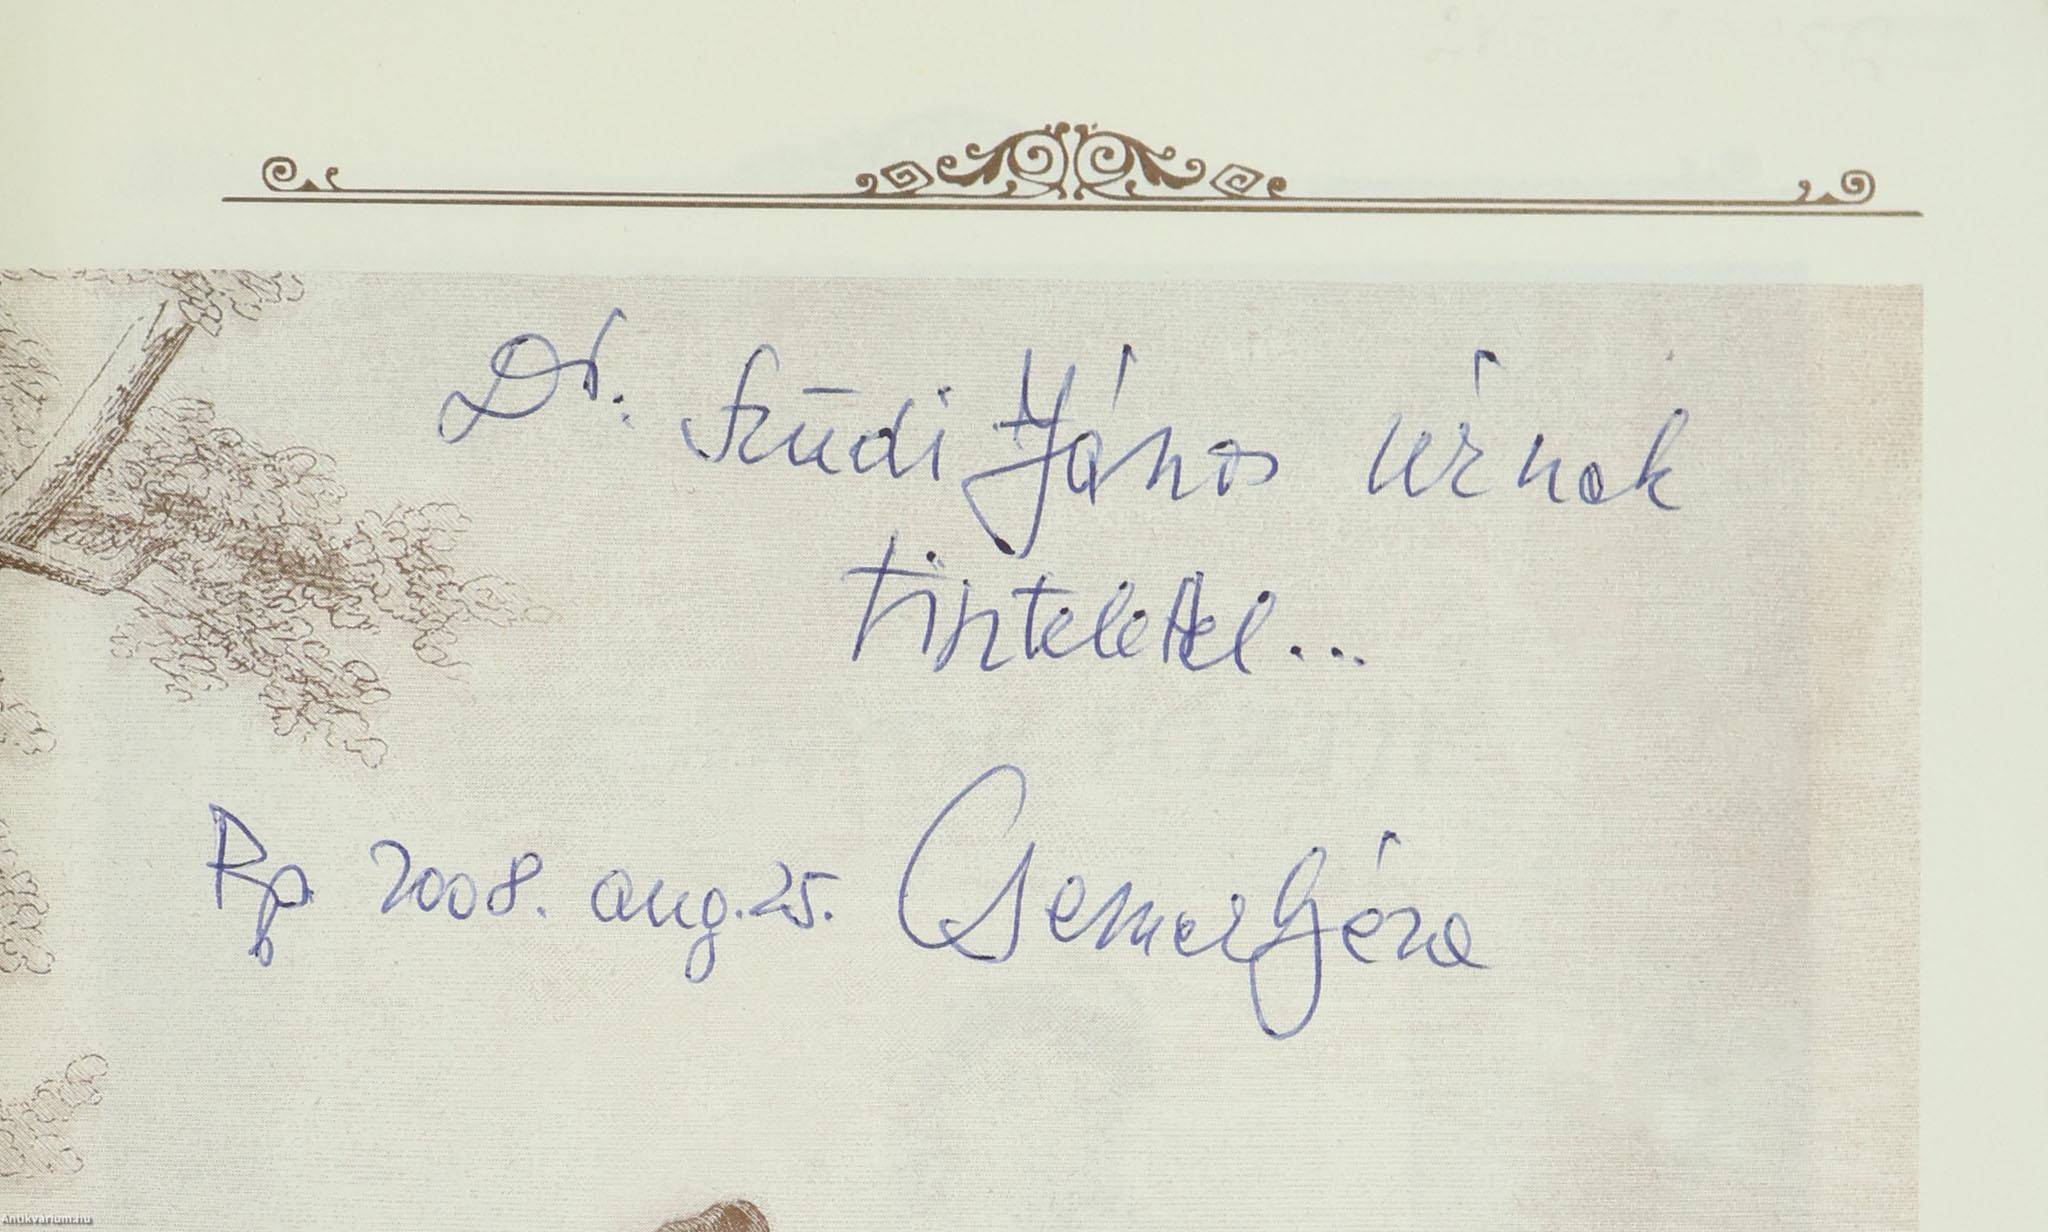 Dr. Szűdi János úrnak
tisztelettel...
Bp 2008. aug. 25. Csemer Géza
Antikvárium.hu